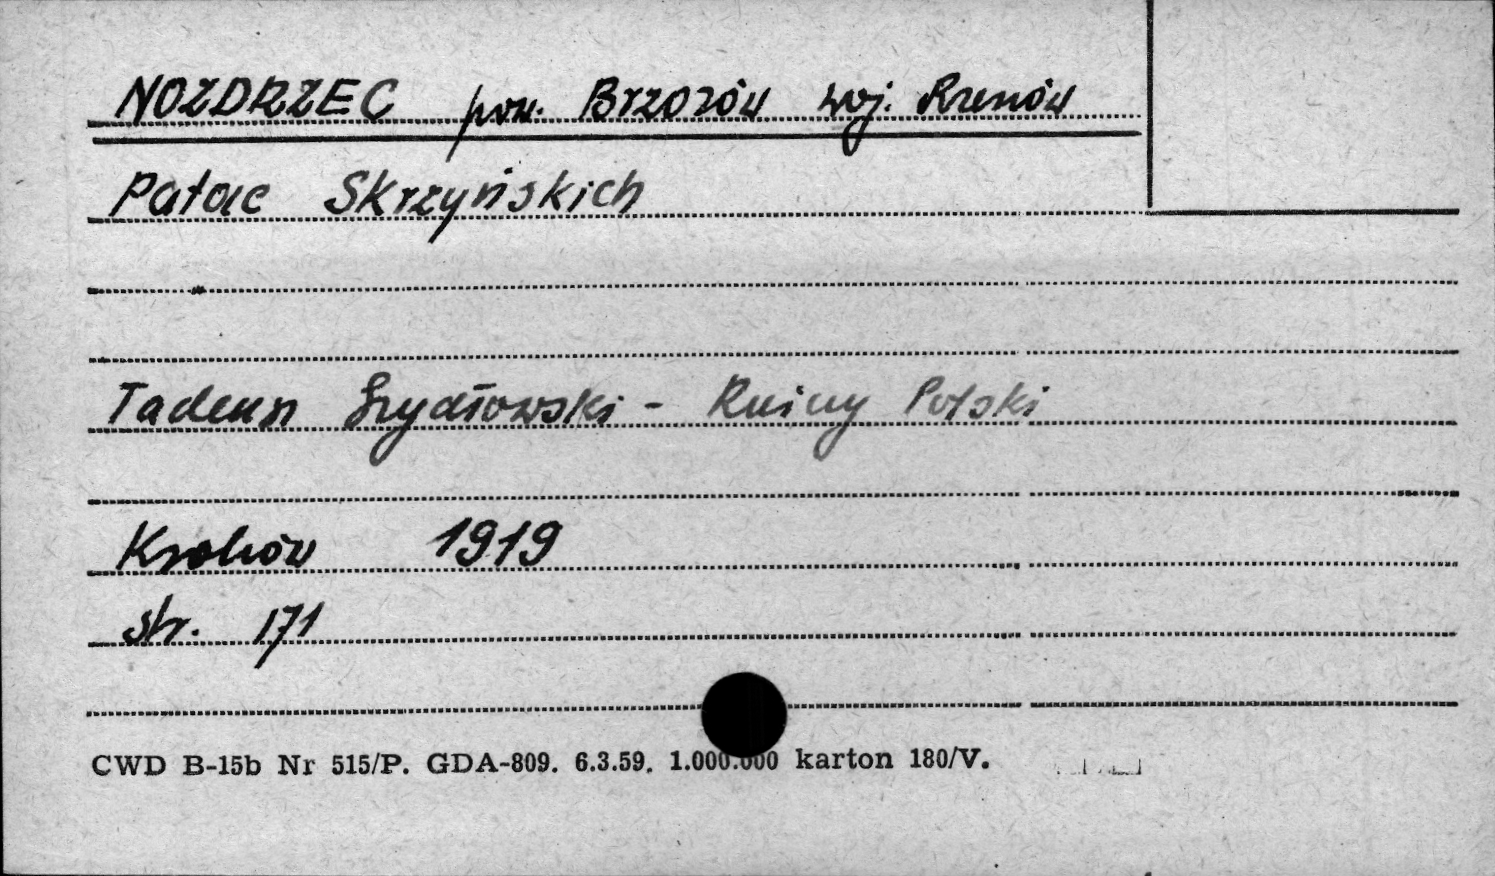 NOZDRZEC pow. Brzozów woj. Rzeszów
Pałac Skrzyńskich
Tadeusz Szydłowski - Ruiny Polski
Kraków 1919
str. 171
CWD B-15b Nr 515/P. GDA-809. 6.3.59. 1.000.000 karton 180/V.